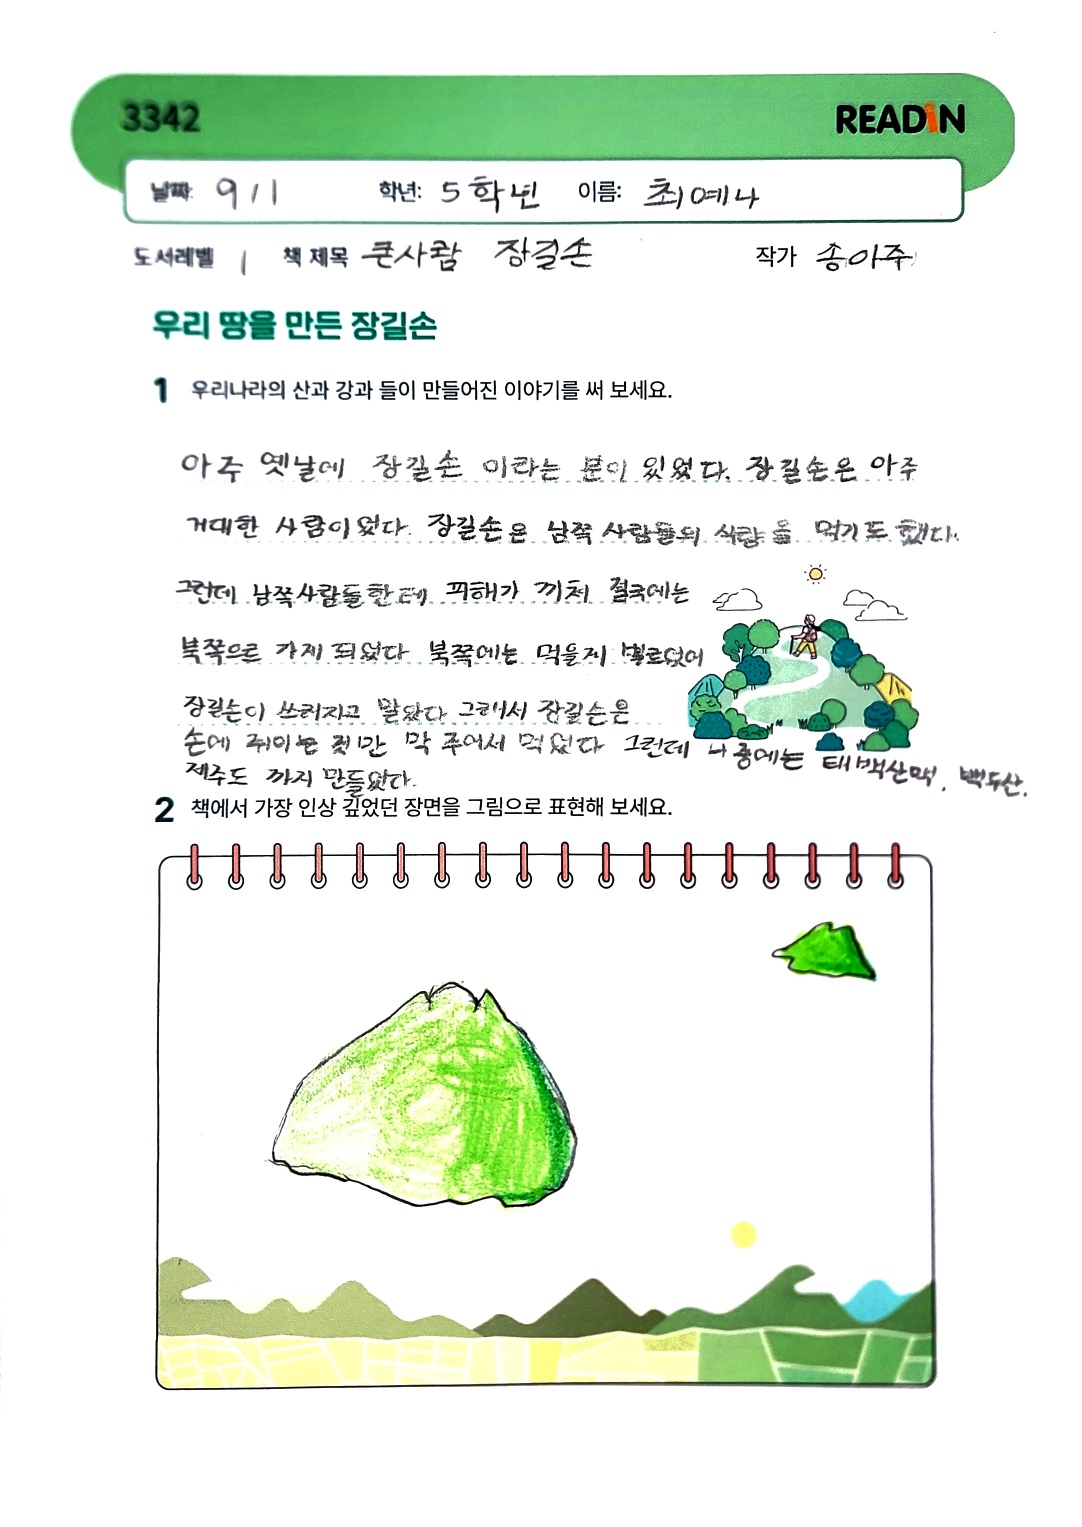 3342
READIN
날짜: 9/1 학년: 5학년 이름: 최예나
도서레벨 1 책 제목 큰사람 장길손 작가 송아주
우리 땅을 만든 장길손
1 우리나라의 산과 강과 들이 만들어진 이야기를 써 보세요.
아주 옛날에 장길손 이라는 분이 있었다. 장길손은 아주
거대한 사람이었다. 장길손은 남쪽 사람들의 식량을 먹기도 했다.
그런데 남쪽사람들한테 피해가 끼쳐 결국에는
북쪽으로 가게 되었다 북쪽에는 먹을게 별로없어
장길손이 쓰러지고 말았다 그래서 장길손은
손에 쥐이는 것만 막 주어서 먹었다 그런데 나중에는 태백산맥, 백두산,
제주도 까지 만들었다.
2 책에서 가장 인상 깊었던 장면을 그림으로 표현해 보세요.